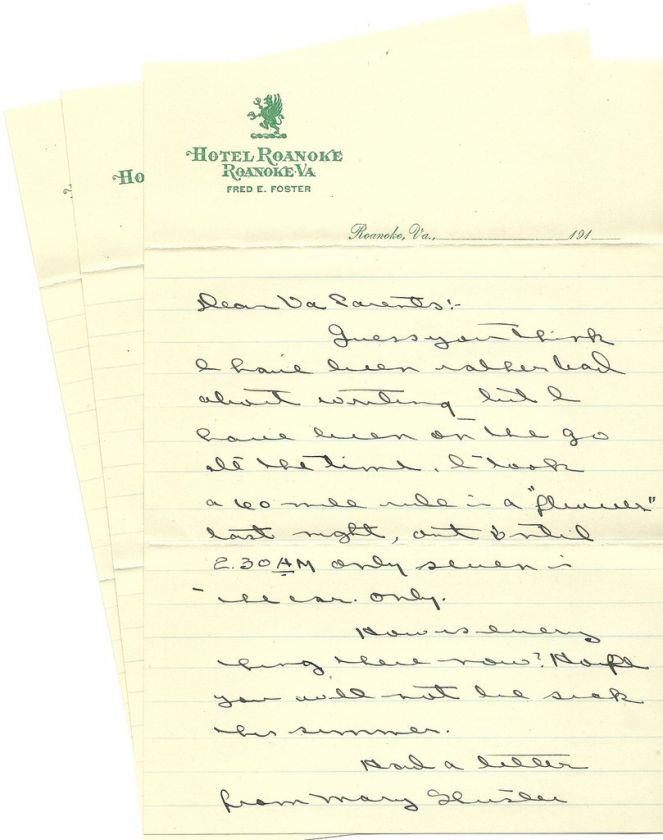 HOTEL ROANOKE
ROANOKE·VA
FRED E. FOSTER
Ho
Roanoke, Va., 191
Dear Va Parents:-
Guess you think
I have been rather bad
about writing but I
have been on the go
all the time. I took
a 60 mile ride in a "flivver"
last night, out until
2.30 AM only seven in
the car. only.
How is every
thing there now? Hope
you will not be sick
this summer.
Had a letter
from Mary